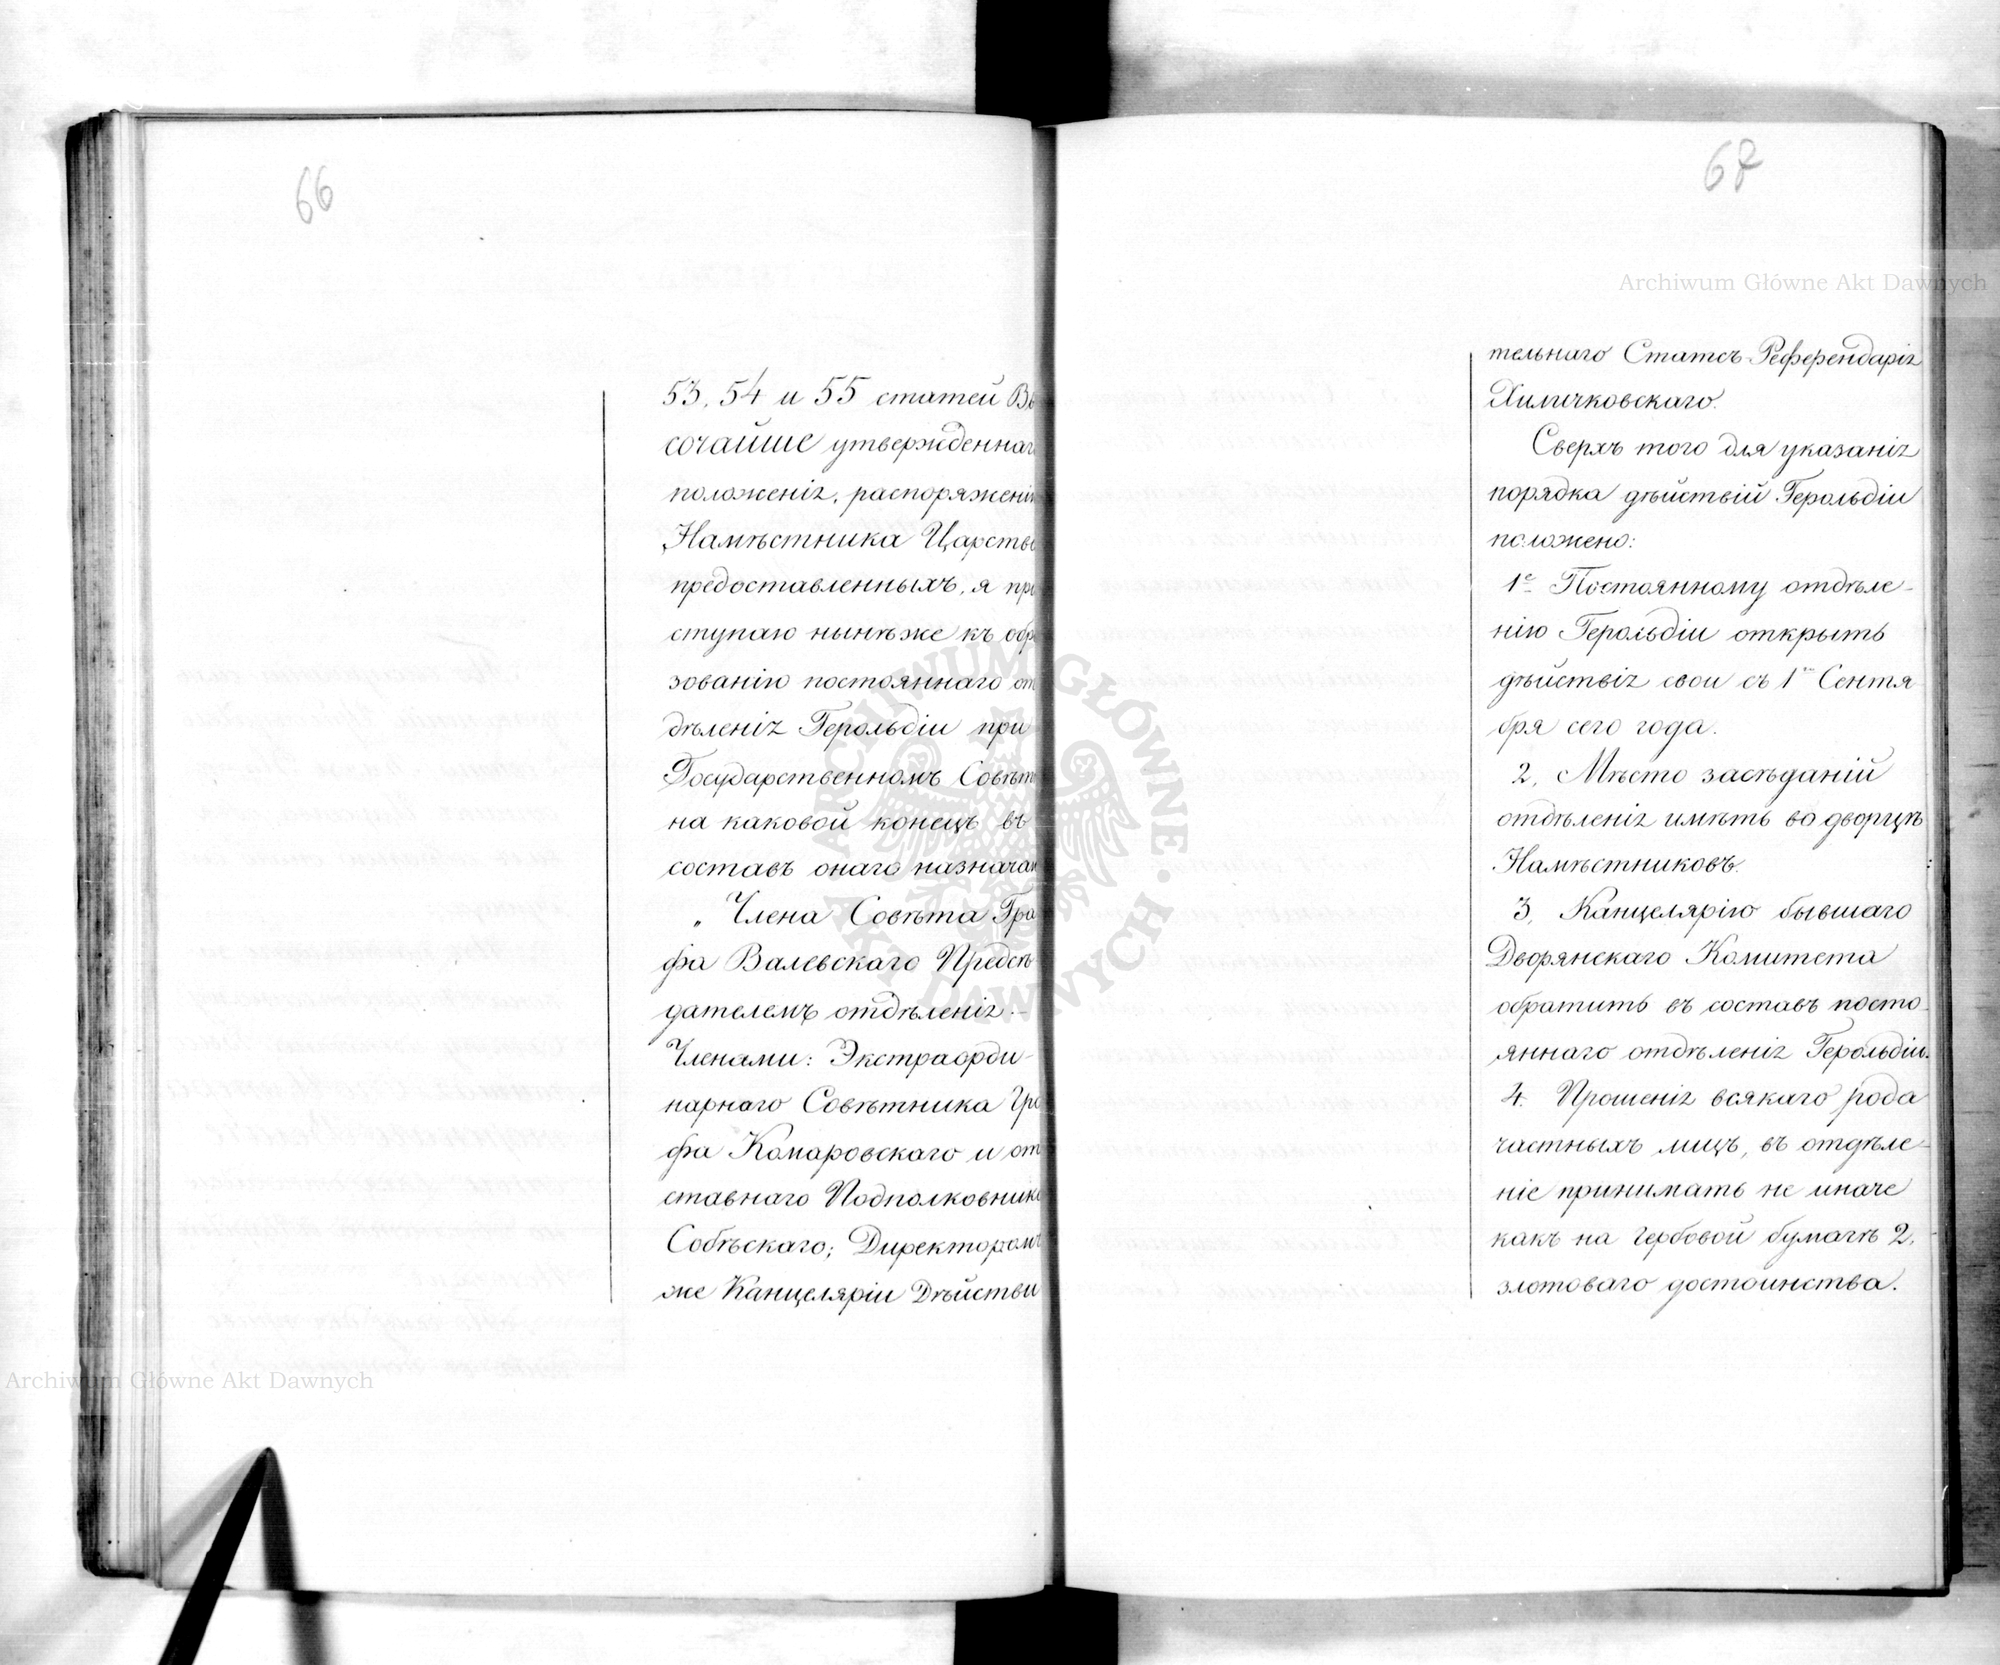 66
53, 54 и 55 статей Вы
сочайше утвержденнаг
положенія, распоряженію
Намѣстника Царства
предоставленныхъ, я при
ступаю нынѣже къ обра
зованію постояннаго от
дѣленія Герольдіи при
Государственномъ Совѣтѣ
на каковой конецъ въ
составъ онаго назначаю
„ Члена Совѣта Гра
фа Валевскаго Предсѣ
дателемъ отдѣленія.—
Членами: Экстраорди-
нарнаго Совѣтника Гра
фа Комаровскаго и от
ставнаго Подполковника
Собѣскаго; Директоромъ
же Канцеляріи Дѣйстви
67
тельнаго Статсъ-Референдарія
Хиличковскаго.
Сверхъ того для указанія
порядка дѣйствій Герольдіи
положено:
1е Постоянному отдѣле-
нію Герольдіи открыть
дѣйствія свои съ 1го Сентя-
бря сего года.
2, Мѣсто засѣданій
отдѣленія имѣть во дворцѣ
Намѣстниковъ.
3, Канцелярію бывшаго
Дворянскаго Комитета
обратить въ составъ посто-
яннаго отдѣленія Герольдіи.
4. Прошенія всякаго рода
частныхъ лицъ, въ отдѣле-
ніе принимать не иначе
какъ на гербовой бумагѣ 2,
злотоваго достоинства.
Archiwum Główne Akt Dawnych
Archiwum Główne Akt Dawnych
ARCHIWUM GŁÓWNE AKT DAWNYCH